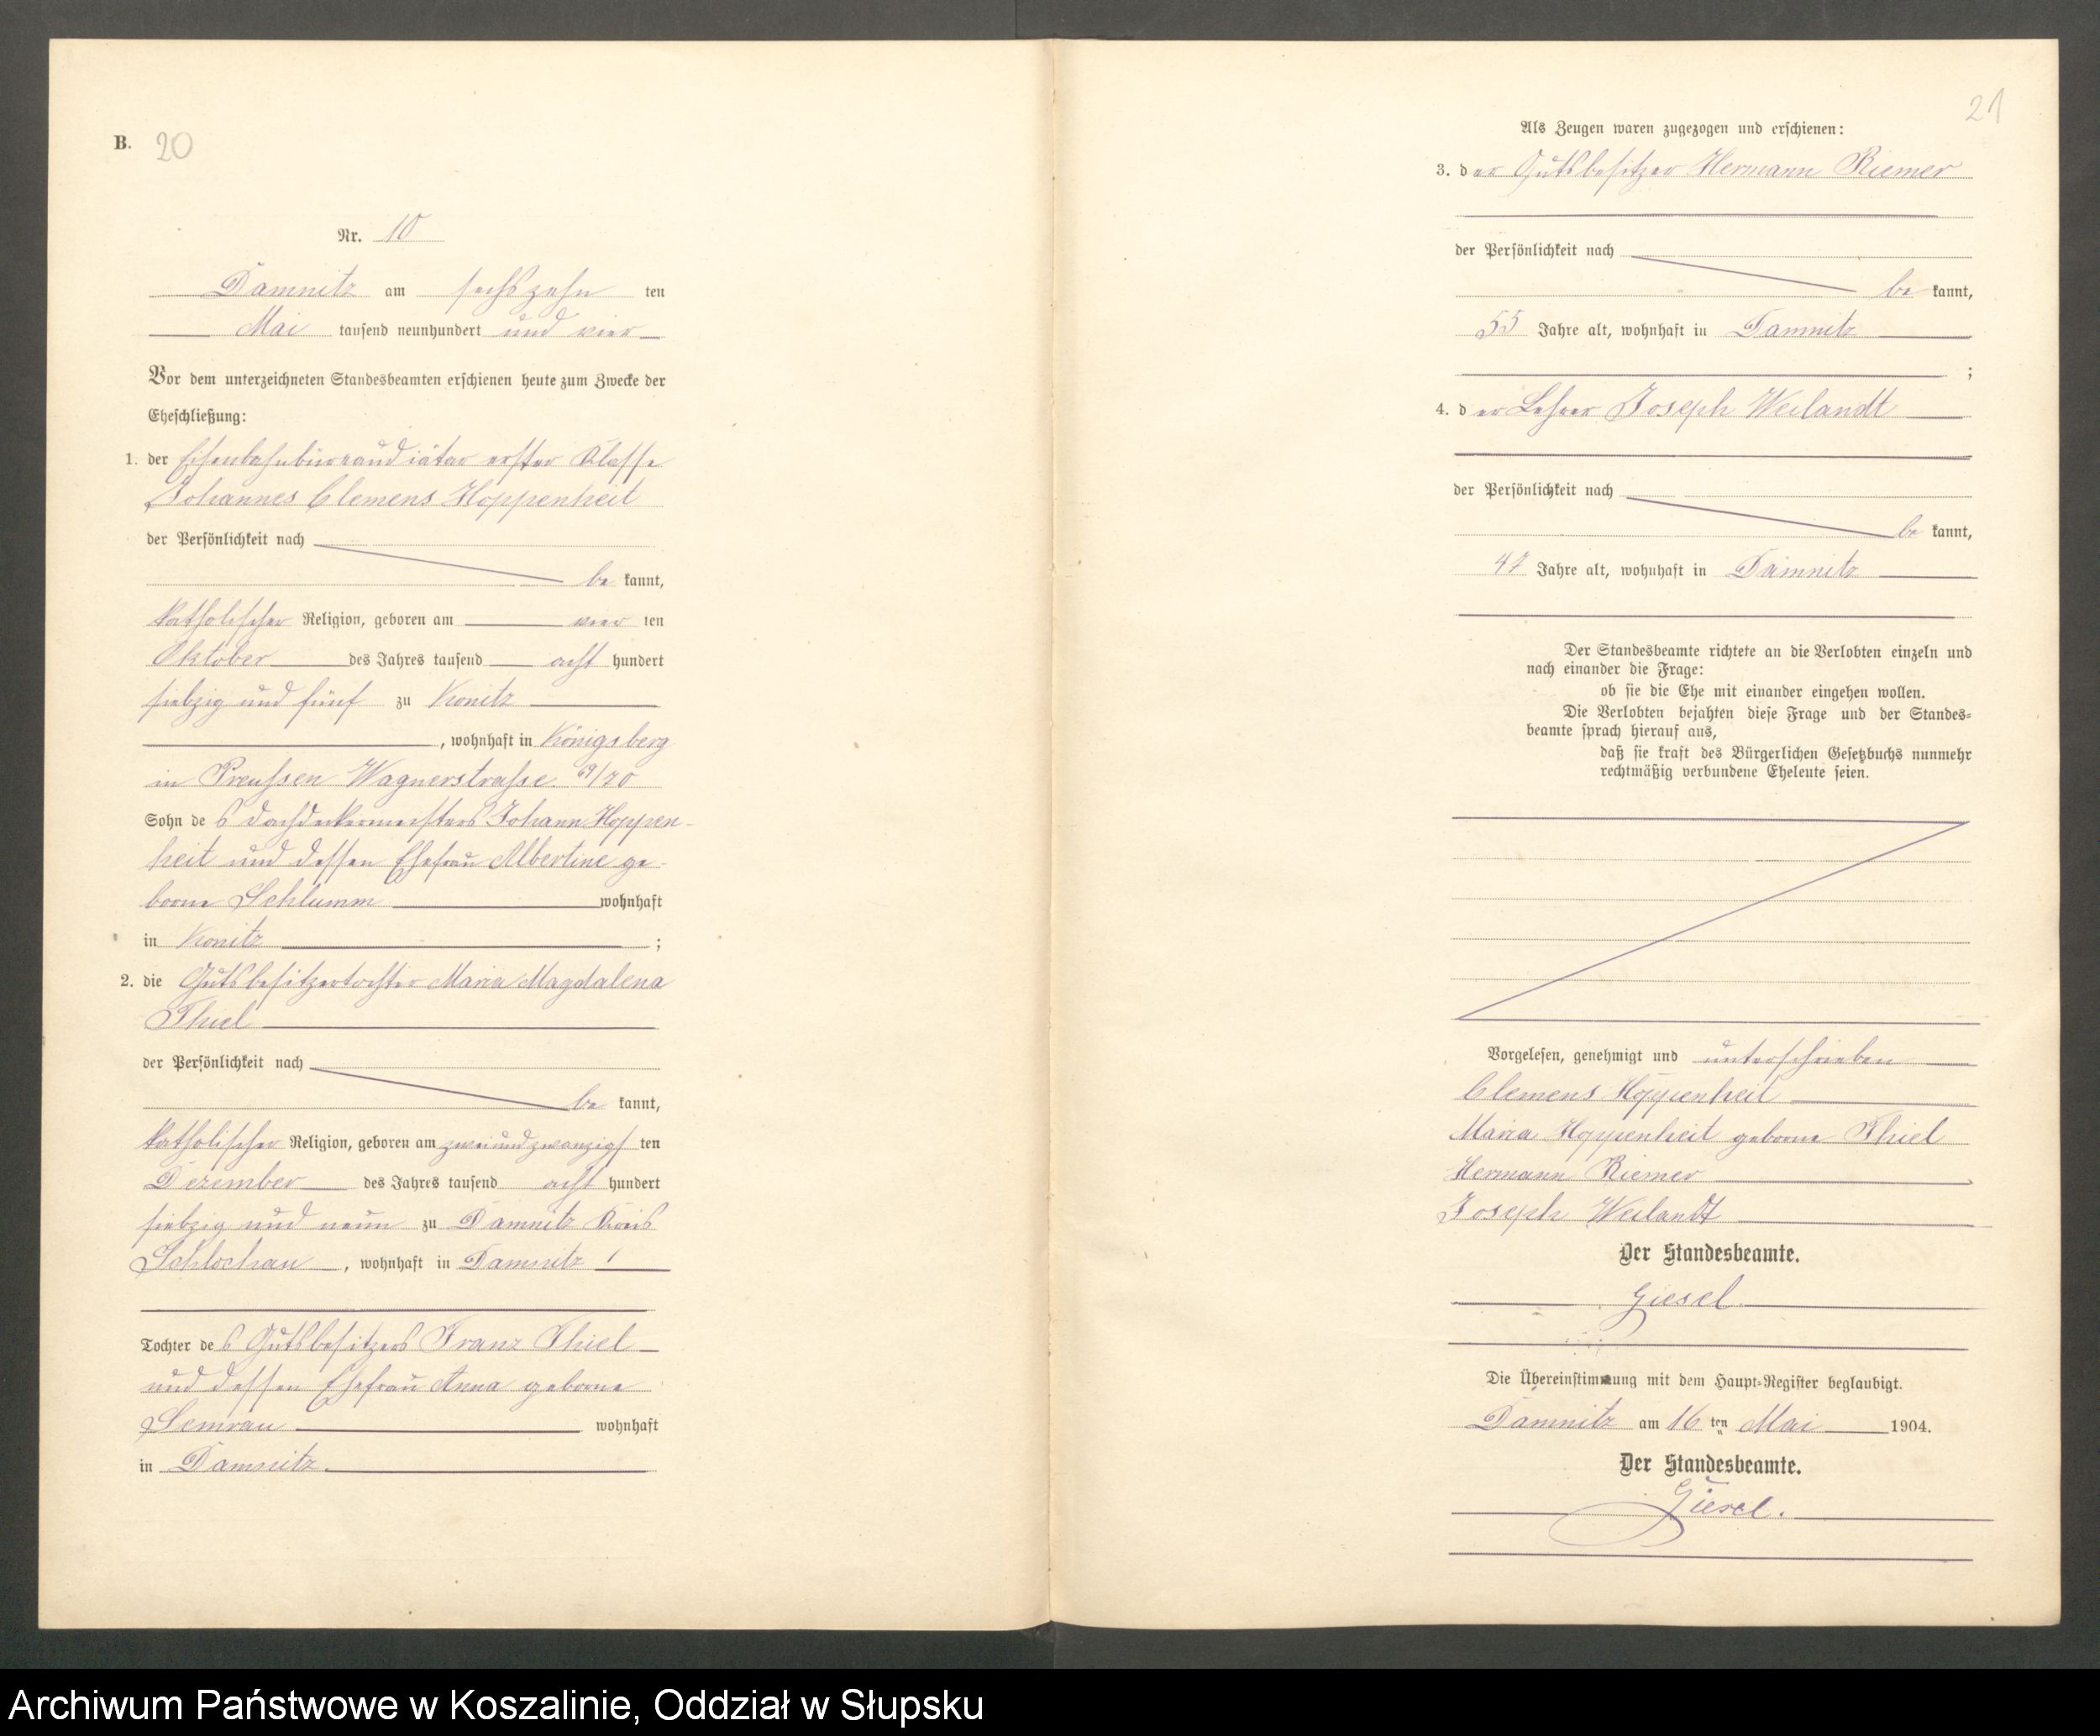 B. 20
Nr. 10
Damnitz am sechszehn ten
Mai tausend neunhundert und vier
Vor dem unterzeichneten Standesbeamten erschienen heute zum Zwecke der
Eheschließung:
1. der Eisenbahnbüreaudiätar erster Klasse
Johannes Clemens Hoppenheit
der Persönlichkeit nach
be kannt,
katholischer Religion, geboren am vier ten
Oktober des Jahres tausend acht hundert
siebzig und fünf zu Konitz
, wohnhaft in Königsberg
in Preußen Wagnerstraße 69/70
Sohn des Dachdeckermeisters Johann Hoppen-
heit und dessen Ehefrau Albertine ge-
borne Schlumm wohnhaft
in Konitz ;
2. die Gutsbesitzertochter Maria Magdalena
Thiel
der Persönlichkeit nach
be kannt,
katholischer Religion, geboren am zweiundzwanzigs ten
Dezember des Jahres tausend acht hundert
siebzig und neun zu Damnitz Kreis
Schlochau , wohnhaft in Damnitz
Tochter des Gutsbesitzers Franz Thiel
und dessen Ehefrau Anna geborne
Semrau wohnhaft
in Damnitz.
21
Als Zeugen waren zugezogen und erschienen:
3. der Gutsbesitzer Hermann Riemer
der Persönlichkeit nach
be kannt,
55 Jahre alt, wohnhaft in Damnitz
;
4. der Lehrer Joseph Weilandt
der Persönlichkeit nach
be kannt,
47 Jahre alt, wohnhaft in Damnitz
Der Standesbeamte richtete an die Verlobten einzeln und
nach einander die Frage:
ob sie die Ehe mit einander eingehen wollen.
Die Verlobten bejahten diese Frage und der Standes-
beamte sprach hierauf aus,
daß sie kraft des Bürgerlichen Gesetzbuchs nunmehr
rechtmäßig verbundene Eheleute seien.
Vorgelesen, genehmigt und unterschrieben
Clemens Hoppenheit
Maria Hoppenheit geborne Thiel
Hermann Riemer
Joseph Weilandt
Der Standesbeamte.
Giesel.
Die Übereinstimmung mit dem Haupt-Register beglaubigt.
Damnitz am 16 ten Mai 1904.
Der Standesbeamte.
Giesel.
Archiwum Państwowe w Koszalinie, Oddział w Słupsku